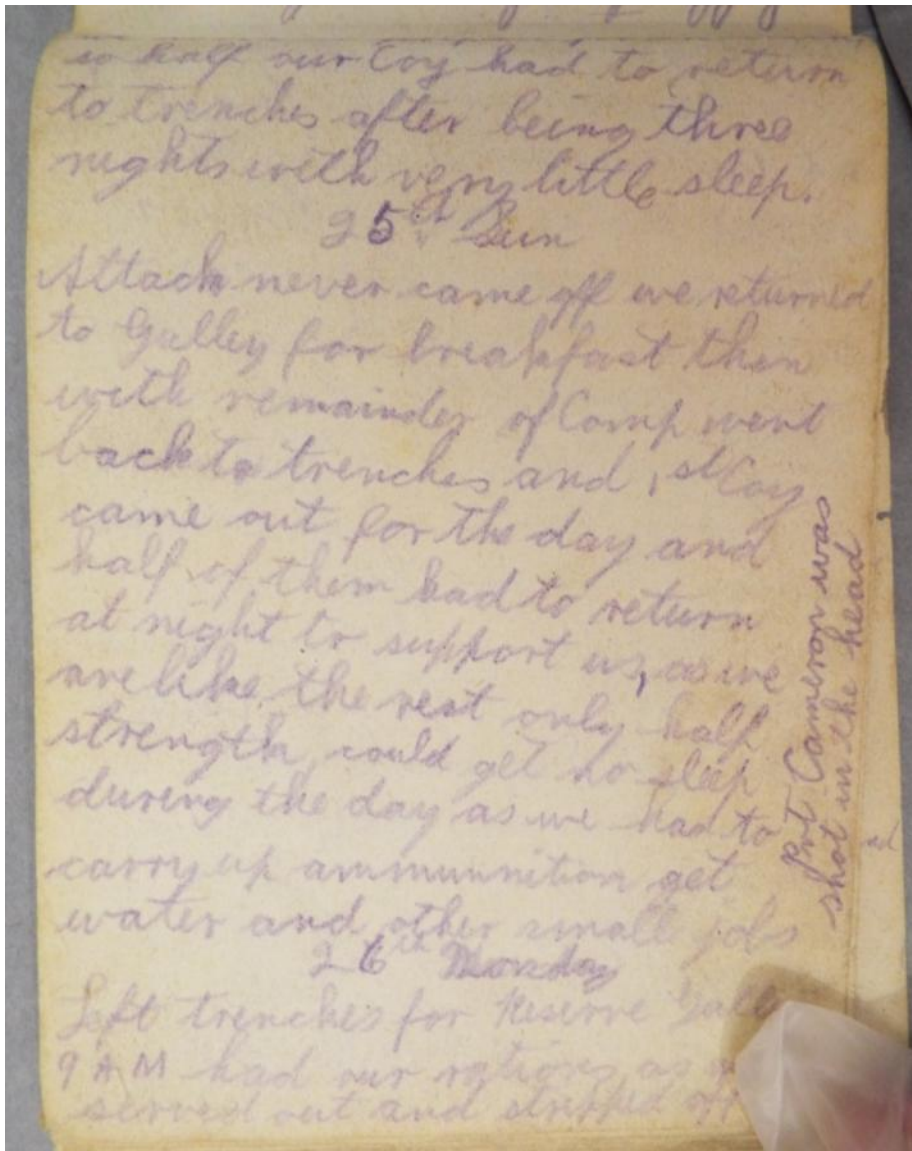 so half our Coy had to return
to trenches after being three
nights with very little sleep.
25th Sun
Attack never came off we returned
to Gulley for breakfast then
with remainder of Comp went
back to trenches and 1st Coy
came out for the day and
half of them had to return
at night to support us, as we
are like the rest only half
strength, could get no sleep
during the day as we had to
carry up ammunnition get
water and other small jobs
26th Monday
Left trenches for Reserve
9 AM had our rations as
served out and stripped off
Pvt Cameron was
shot in the head